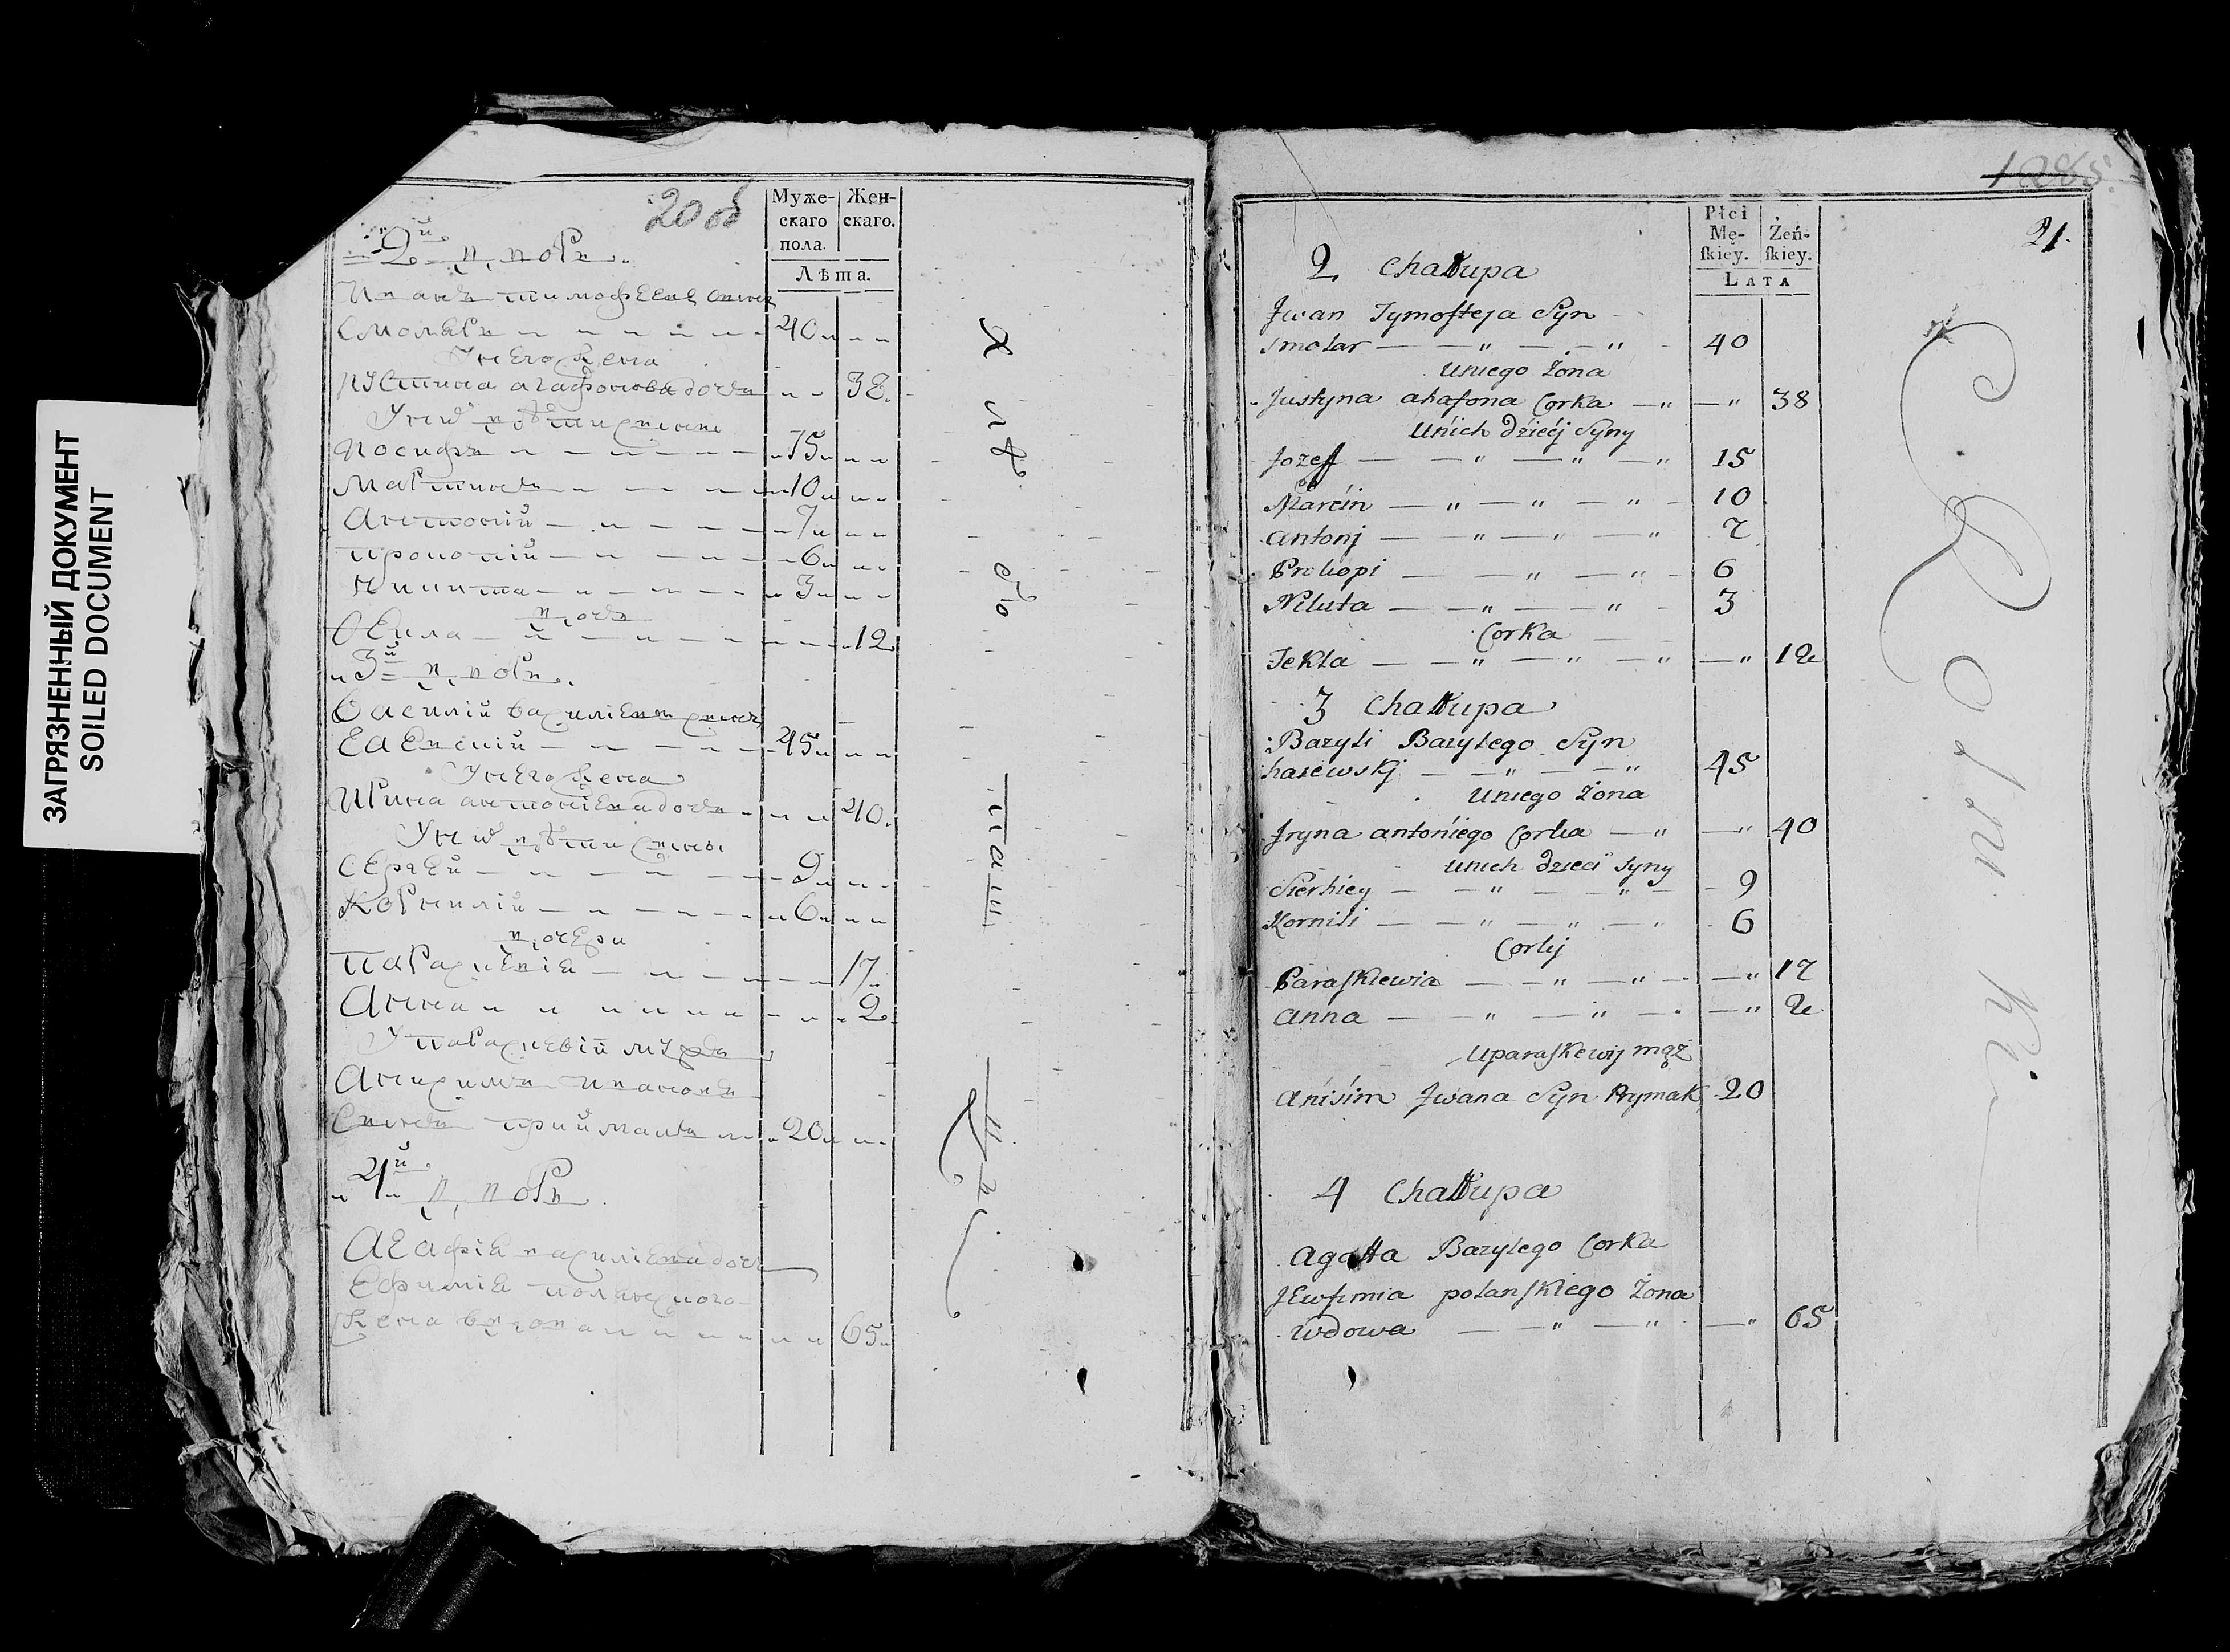 ЗАГРЯЗНЕННЫЙ ДОКУМЕНТ
SOILED DOCUMENT
20 об
Муже-
скаго
пола.
Жен-
скаго.
Лѣта.
2й двор
Иванъ тимофѣевъ сынъ
смоляръ 40
У него жена
Иустина агафонова дочь 38
У них дѣти сыны
Иосифъ 15
Мартинъ 10
Антоній 7
Прокопій 6
Никита 3
дочь
12
3й двор
Василій василіевъ сынъ
45
У него жена
Ирина антоніева дочь 40
У них дѣти сыны
Сергей 9
Корнилій 6
дочери
Параскевія 17
Анна 2
У параскевій мужъ
Анисимъ Иванов
Сынъ приймакъ 20
4й двор
Агафія василіева дочь
Ефимія полянского
жена вдова 65
1285
21.
Płci
Mę-
ſkiey.
Żeń-
ſkiey.
LATA
2 Chałłupa
Jwan Tymofteja Syn
Smolar 40
Uniego Żona
Justyna ahafona Corka 38
Unich dzieći Syny
Jozeff 15
Marćin 10
Antonj 7
Prokopi 6
Nikita 3
Corka
Tekla 12
3 Chałłupa
Bazyli Bazylego Syn
45
Uniego Żona
Jryna antoniego Corka 40
Unich dzieci Syny
Sierhiey 9
Kornili 6
Corki
Paraſkiewia 17
Anna 2
Uparaſkewij mąż
Anisim Jwana Syn Prymak 20
4 Chałłupa
Agatta Bazylego Corka
JEwfimia polanſkiego Żona
wdowa 65